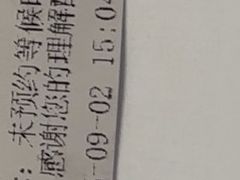 ：未预约等候
感谢您的理解
-09-02 15:04